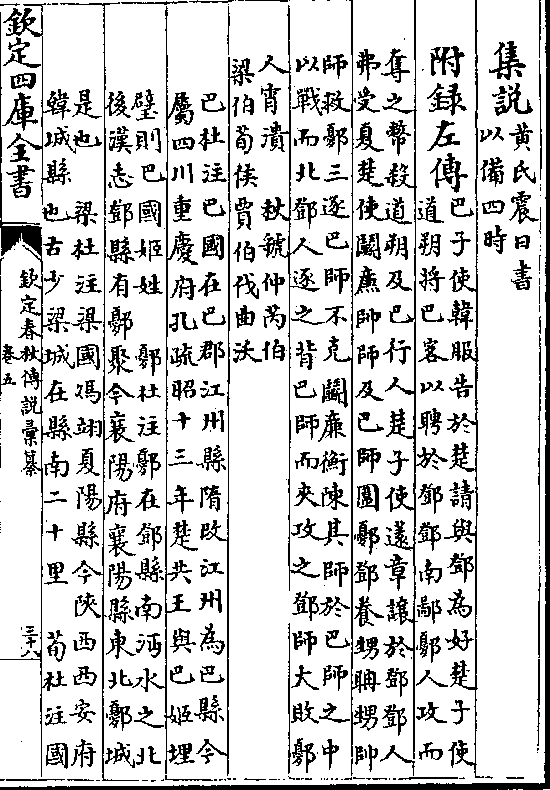 集説黄氏震曰書
以備四時
附録左傳巴子使韓服告於楚請與鄧為好楚子使
道朔將巴客以聘於鄧鄧南鄙鄾人攻而
奪之幣殺道朔及巴行人楚子使薳章讓於鄧鄧人
弗受夏楚使鬭廉帥師及巴師圍鄾鄧養甥聃甥帥
師救鄾三逐巴師不克鬭廉衡陳其師於巴師之中
以戰而北鄧人逐之背巴師而夾攻之鄧師大敗鄾
人宵潰 秋虢仲芮伯
梁伯荀侯賈伯伐曲沃
巴杜注巴國在巴郡江州縣隋改江州為巴縣今
屬四川重慶府孔疏昭十三年楚共王與巴姬埋
璧則巴國姬姓 鄾杜注鄾在鄧縣南沔水之北
後漢志鄧縣有鄾聚今襄陽府襄陽縣東北鄾城
是也 梁杜注梁國馮翊夏陽縣今陝西西安府
韓城縣也古少梁城在縣南二十里 荀杜注國
欽定四庫全書
欽定春秋傳說彙纂
卷五
三十八